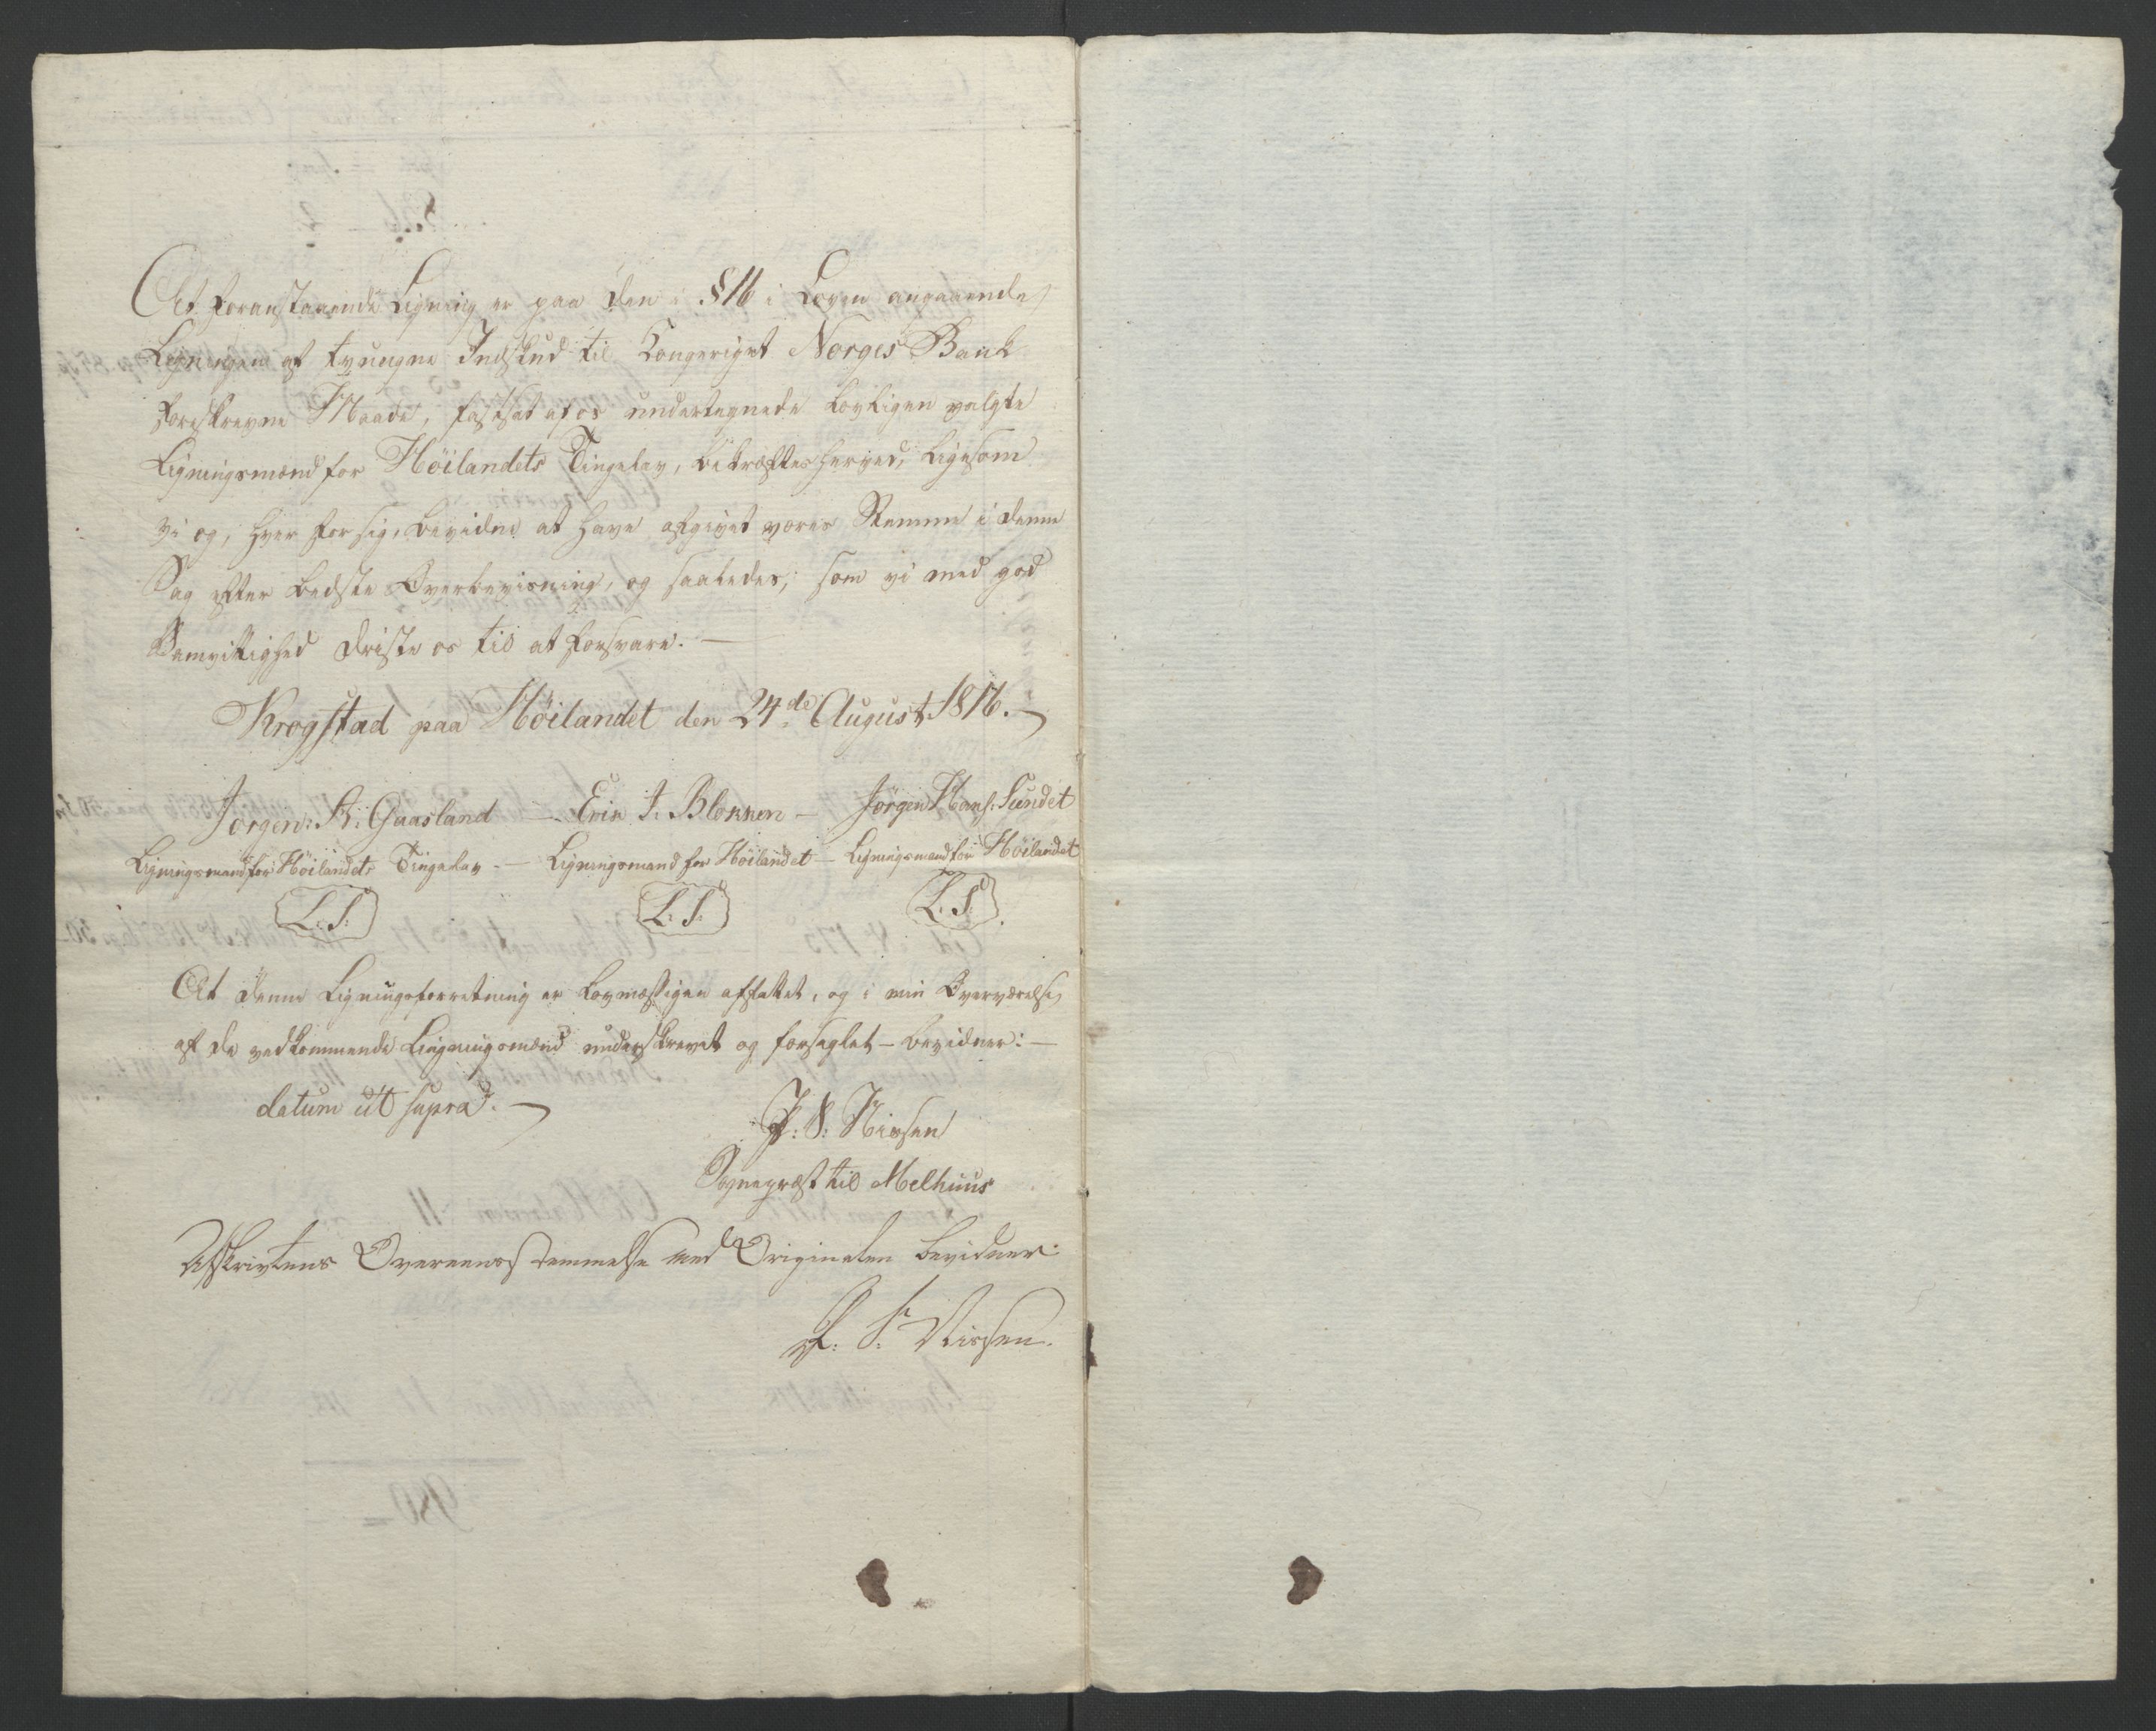 At foranstaaende Ligning er paa den i §16 i Loven angaaende
Ligningen af tvungne Indskud til Kongeriget Norges Bank
foreskrevne Maade, fastsat af os undertegnede lovligen valgte
Ligningsmænd for Höilandets Tingelav, bekræftes herved, ligesom
vi og, hver for sig, bevidne at have afgivet vores Stemme i denne
Sag efter bedste Overbevisning, og saaledes, som vi med god
Samvittighed driste os til at forsvare. —
Krogstad paa Höilandet den 24de August 1816. —
Jörgen: A: Gaasland — Erik J. Blokken — Jörgen Hans: Sundet
Ligningsmand for Höilandets Tingelav — Ligningsmand for Höilandet — Ligningsmand for Höilandet
L. S. L. S. L. S.
At denne Ligningsforretning er lovmæssigen affattet, og i min Overværelse
af de vedkommende Ligningsmænd underskrevet og forseglet — bevidner: —
datum ut supra. —
P: S: Nissen
Sognepræst til Melhuus
Afskrivtens Overeensstemmelse med Originalen bevidner:
P: S: Nissen.